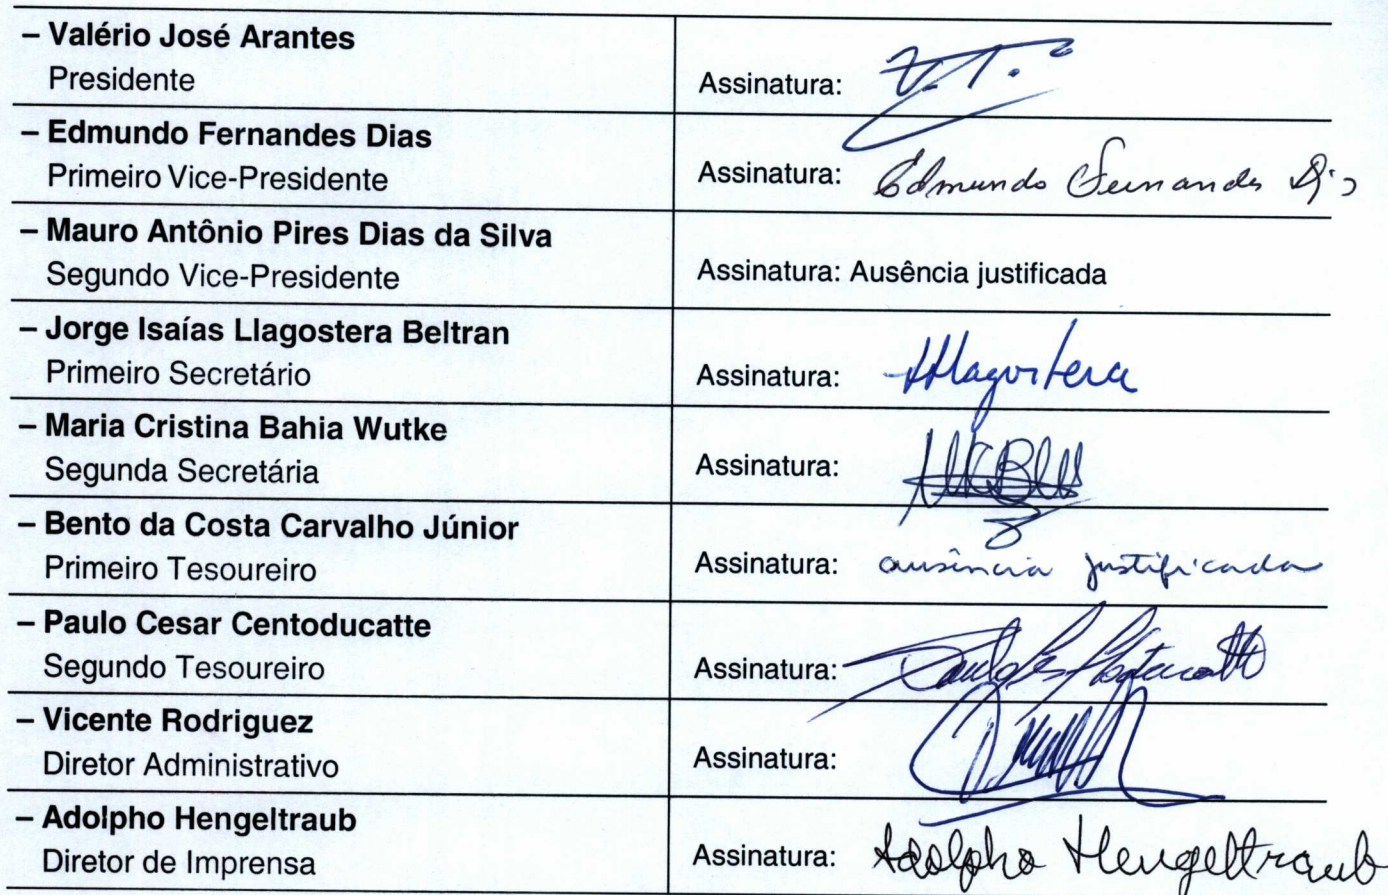 – Valério José Arantes
Presidente
Assinatura:
– Edmundo Fernandes Dias
Primeiro Vice-Presidente
Assinatura: Edmundo Fernandes Dias
– Mauro Antônio Pires Dias da Silva
Segundo Vice-Presidente
Assinatura: Ausência justificada
– Jorge Isaías Llagostera Beltran
Primeiro Secretário
Assinatura: Llagostera
– Maria Cristina Bahia Wutke
Segunda Secretária
Assinatura:
– Bento da Costa Carvalho Júnior
Primeiro Tesoureiro
Assinatura: ausência justificada
– Paulo Cesar Centoducatte
Segundo Tesoureiro
Assinatura:
– Vicente Rodriguez
Diretor Administrativo
Assinatura:
– Adolpho Hengeltraub
Diretor de Imprensa
Assinatura: Adolpho Hengeltraub